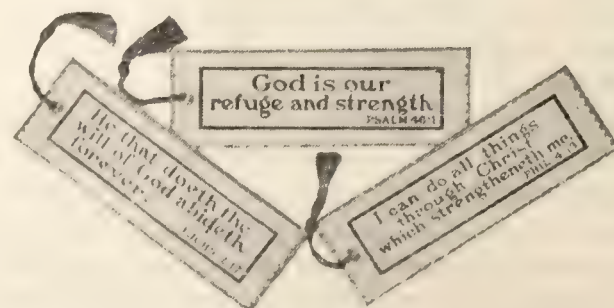 He that doeth the
will of God abideth
forever.
I JOHN 2:17
God is our
refuge and strength
PSALM 46:1
I can do all things
through Christ
which strengtheneth me.
PHIL. 4:13